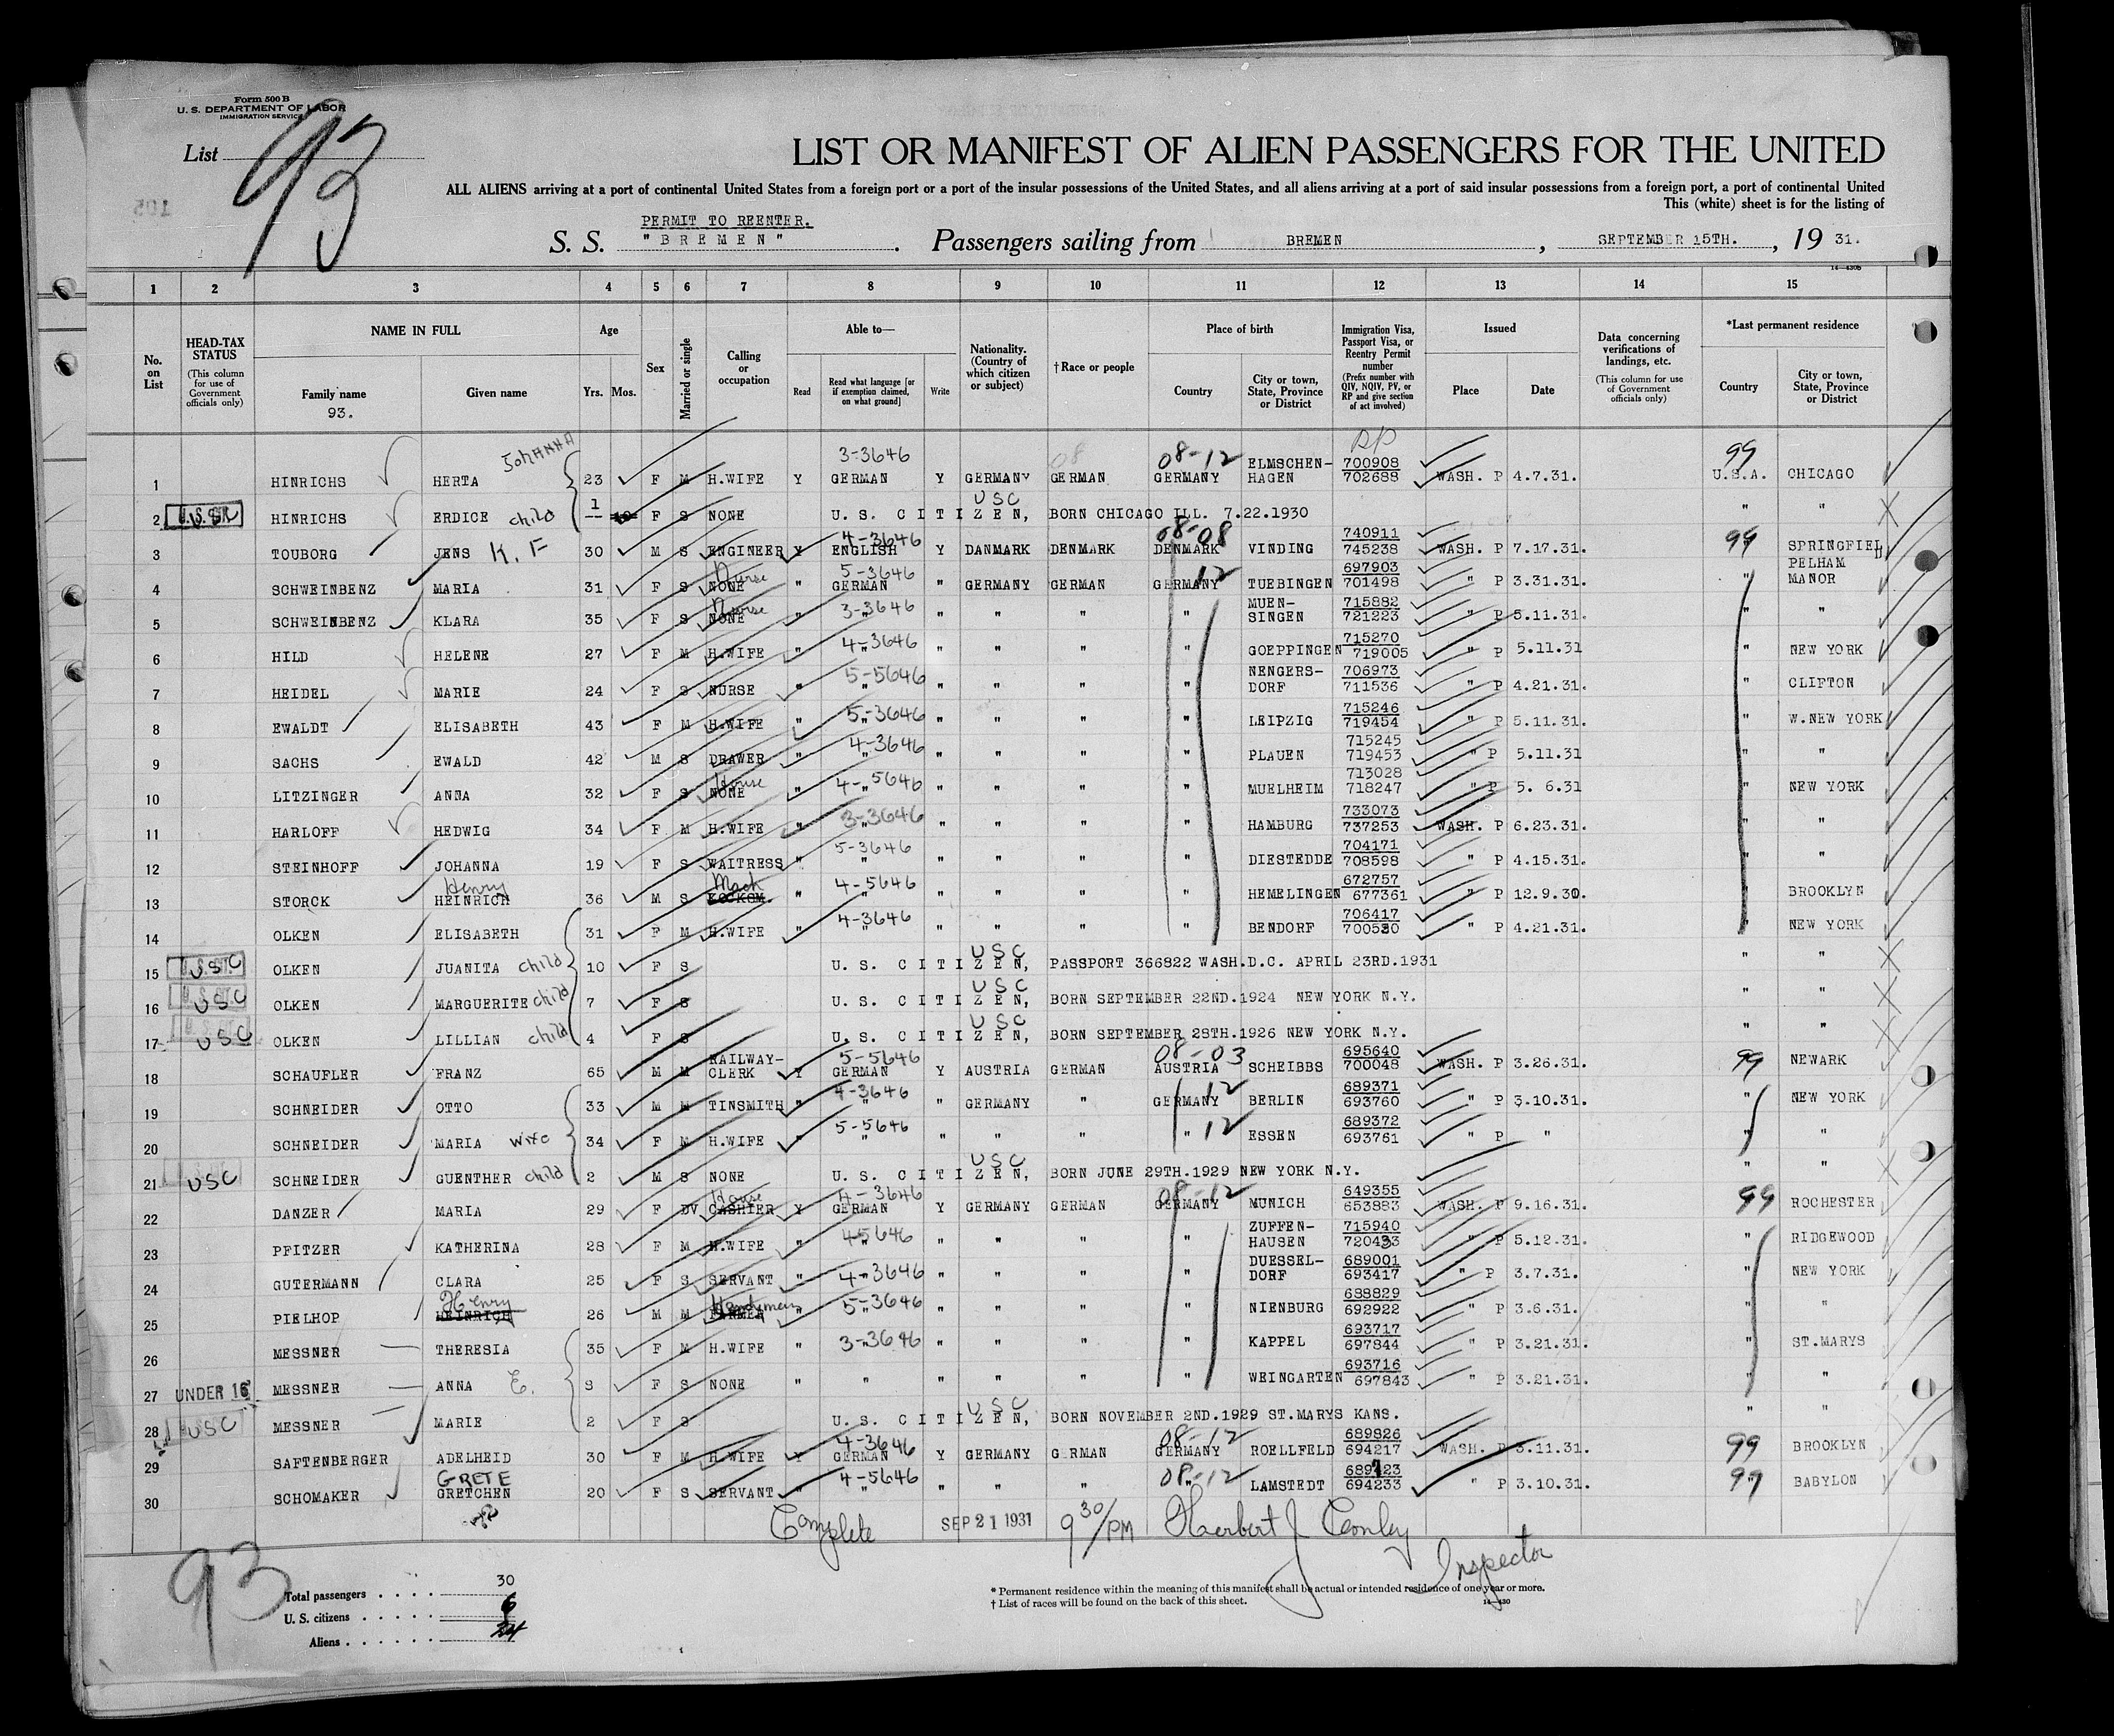 Form 500 B
U. S. DEPARTMENT OF LABOR
IMMIGRATION SERVICE
List 93
LIST OR MANIFEST OF ALIEN PASSENGERS FOR THE UNITED
ALL ALIENS arriving at a port of continental United States from a foreign port or a port of the insular possessions of the United States, and all aliens arriving at a port of said insular possessions from a foreign port, a port of continental United
This (white) sheet is for the listing of
PERMIT TO REENTER.
S. S. "BREMEN". Passengers sailing from BREMEN, SEPTEMBER 15TH., 19 31.
1 2 3 4 5 6 7 8 9 10 11 12 13 14 15
No. on List
HEAD-TAX STATUS (This column for use of Government officials only)
NAME IN FULL Family name 93. Given name
Age Yrs. Mos.
Sex
Married or single
Calling or occupation
Able to— Read Read what language [or if exemption claimed, on what ground] Write
Nationality. (Country of which citizen or subject)
†Race or people
Place of birth Country City or town, State, Province or District
Immigration Visa, Passport Visa, or Reentry Permit number (Prefix number with QIV, NQIV, PV, or RP and give section of act involved)
Issued Place Date
Data concerning verifications of landings, etc. (This column for use of Government officials only)
*Last permanent residence Country City or town, State, Province or District
RP
1 HINRICHS HERTA JOHANNA 23 F M H.WIFE Y 3-3646 GERMAN Y GERMANY 08 GERMAN 08-12 GERMANY ELMSCHEN-HAGEN 700908 702688 WASH. P 4.7.31. 99 U.S.A. CHICAGO
2 HINRICHS ERDICE child 1 F S NONE U. S. CITIZEN, USC BORN CHICAGO ILL. 7.22.1930 " "
3 TOUBORG JENS K. F 30 M S ENGINEER Y 4-3646 ENGLISH Y DANMARK DENMARK 08-08 DENMARK VINDING 740911 745238 WASH. P 7.17.31. 99 SPRINGFIELD
4 SCHWEINBENZ MARIA 31 F S NONE Nurse " 5-3646 GERMAN " GERMANY GERMAN 12 GERMANY TUEBINGEN 697903 701498 " P 3.31.31. " PELHAM MANOR
5 SCHWEINBENZ KLARA 35 F S NONE Nurse " 3-3646 " " " " " MUEN-SINGEN 715882 721223 " P 5.11.31. " "
6 HILD HELENE 27 F M H.WIFE " 4-3646 " " " " " GOEPPINGEN 715270 719005 " P 5.11.31 " NEW YORK
7 HEIDEL MARIE 24 F S NURSE " 5-5646 " " " " " NENGERS-DORF 706973 711536 " P 4.21.31. " CLIFTON
8 EWALDT ELISABETH 43 F M H.WIFE " 5-3646 " " " " " LEIPZIG 715246 719454 " P 5.11.31. " W.NEW YORK
9 SACHS EWALD 42 M S DRAWER " 4-3646 " " " " " PLAUEN 715245 719453 " P 5.11.31 " "
10 LITZINGER ANNA 32 F S NONE House " 4-5646 " " " " " MUELHEIM 713028 718247 " P 5. 6.31 " NEW YORK
11 HARLOFF HEDWIG 34 F M H.WIFE " 3-3646 " " " " " HAMBURG 733073 737253 WASH. P 6.23.31. " "
12 STEINHOFF JOHANNA 19 F S WAITRESS " 5-3646 " " " " " DIESTEDDE 704171 708598 " P 4.15.31. " "
13 STORCK HEINRICH Henry 36 M S Mach " 4-5646 " " " " " HEMELINGEN 672757 677361 " P 12.9.30. " BROOKLYN
14 OLKEN ELISABETH 31 F M H.WIFE " 4-3646 " " " " " BENDORF 706417 700530 " P 4.21.31. " NEW YORK
15 USC OLKEN JUANITA child 10 F S U. S. CITIZEN, USC PASSPORT 366822 WASH.D.C. APRIL 23RD.1931 " "
16 USC OLKEN MARGUERITE child 7 F S U. S. CITIZEN, USC BORN SEPTEMBER 22ND.1924 NEW YORK N.Y. " "
17 USC OLKEN LILLIAN child 4 F S U. S. CITIZEN, USC BORN SEPTEMBER 28TH.1926 NEW YORK N.Y. " "
18 SCHAUFLER FRANZ 65 M M RAILWAY-CLERK Y 5-5646 GERMAN Y AUSTRIA GERMAN 08-03 AUSTRIA SCHEIBBS 695640 700048 WASH. P 3.26.31. 99 NEWARK
19 SCHNEIDER OTTO 33 M M TINSMITH " 4-3646 " " GERMANY " 12 GERMANY BERLIN 689371 693760 " P 3.10.31. " NEW YORK
20 SCHNEIDER MARIA wife 34 F M H.WIFE " 5-5646 " " " " " 12 ESSEN 689372 693761 " P " " "
21 USC SCHNEIDER GUENTHER child 2 M S NONE U. S. CITIZEN, USC BORN JUNE 29TH.1929 NEW YORK N.Y. " "
22 DANZER MARIA 29 F DV CASHIER House Y 4-3646 GERMAN Y GERMANY GERMAN 08-12 GERMANY MUNICH 649355 653883 WASH. P 9.16.31. 99 ROCHESTER
23 PFITZER KATHERINA 28 F M H.WIFE " 4-5646 " " " " " ZUFFEN-HAUSEN 715940 720433 " P 5.12.31. " RIDGEWOOD
24 GUTERMANN CLARA 25 F S SERVANT " 4-3646 " " " " " DUESSEL-DORF 689001 693417 " P 3.7.31. " NEW YORK
25 PIELHOP HEINRICH Henry 26 M M FARMER Handyman " 5-3646 " " " " " NIENBURG 688829 692922 " P 3.6.31. " "
26 MESSNER THERESIA 35 F M H.WIFE " 3-3646 " " " " " KAPPEL 693717 697844 " P 3.21.31. " ST.MARYS
27 UNDER 16 MESSNER ANNA E. 9 F S NONE " " " " " " WEINGARTEN 693716 697843 " P 3.21.31. " "
28 USC MESSNER MARIE 2 F S U. S. CITIZEN, USC BORN NOVEMBER 2ND.1929 ST.MARYS KANS. " "
29 SAFTENBERGER ADELHEID 30 F M H.WIFE Y 4-3646 GERMAN Y GERMANY GERMAN 08-12 GERMANY ROELLFELD 689826 694217 WASH. P 3.11.31. 99 BROOKLYN
30 SCHOMAKER GRETE GRETCHEN 20 F S SERVANT " 4-5646 " " " " 08-12 " LAMSTEDT 689723 694233 " P 3.10.31. 99 " BABYLON
Complete SEP 21 1931 9 30/PM Herbert J Conley
Inspector
93
Total passengers 30
U. S. citizens 6
Aliens 24
* Permanent residence within the meaning of this manifest shall be actual or intended residence of one year or more.
† List of races will be found on the back of this sheet.
14—430